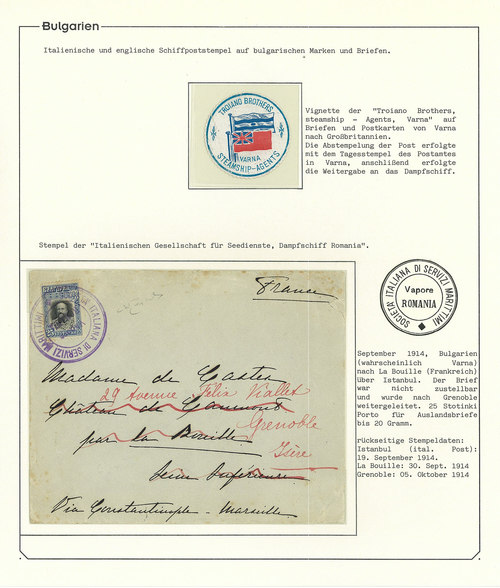 Bulgarien
Italienische und englische Schiffpoststempel auf bulgarischen Marken und Briefen.
TROIANO BROTHERS
VARNA
STEAMSHIP-AGENTS
Vignette der "Troiano Brothers,
steamship - Agents, Varna" auf
Briefen und Postkarten von Varna
nach Großbritannien.
Die Abstempelung der Post erfolgte
mit dem Tagesstempel des Postamtes
in Varna, anschlißend erfolgte
die Weitergabe an das Dampfschiff.
Stempel der "Italienischen Gesellschaft für Seedienste, Dampfschiff Romania".
SOCIETÀ ITALIANA DI SERVIZI MARITTIMI
Vapore
ROMANIA
ITALIANA DI SERVIZI MARITTIMI
France
Madame de Castex
29 Avenue Félix Viallet
Château de
Grenoble
par la Bouille
Isère
Seine Inférieure
Via Constantinople - Marseille
September 1914, Bulgarien
(wahrscheinlich Varna)
nach La Bouille (Frankreich)
über Istanbul. Der Brief
war nicht zustellbar
und wurde nach Grenoble
weitergeleitet. 25 Stotinki
Porto für Auslandsbriefe
bis 20 Gramm.
rückseitige Stempeldaten:
Istanbul (ital. Post):
19. September 1914.
La Bouille: 30. Sept. 1914
Grenoble: 05. Oktober 1914